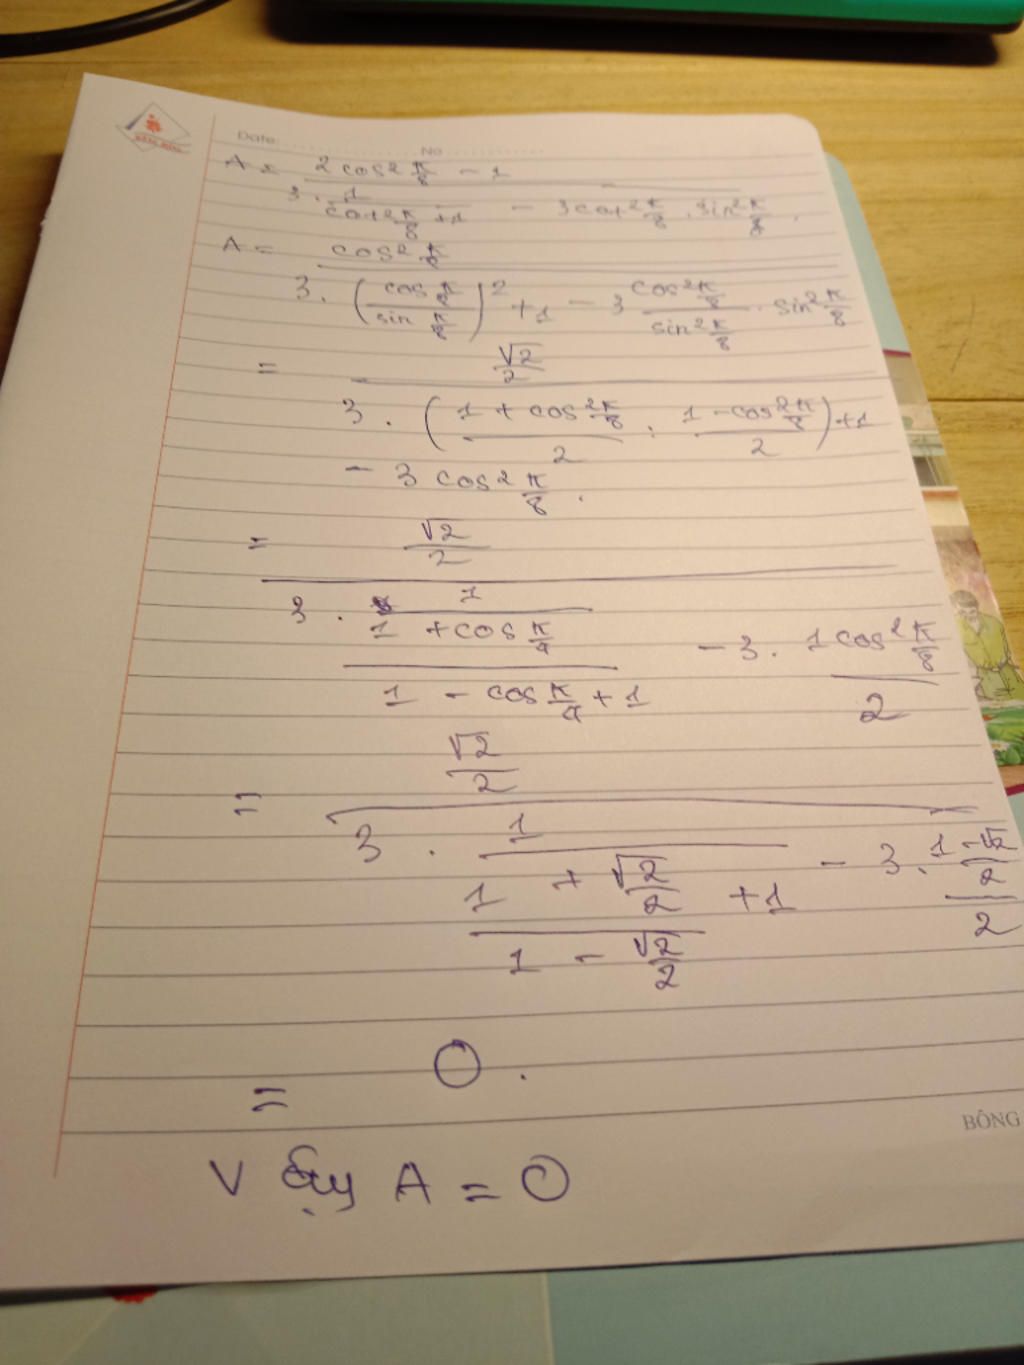 Date: No
A = 2 cos² π/8 - 1
3 . 1 / cot² π/8 + 1 - 3cot² π/8 . sin² π/8 .
A = cos2 π/8
3 . ( cos π/8 / sin π/8 )² + 1 - 3 cos² π/8 / sin² π/8 . sin² π/8
= √2/2
3 . ( 1 + cos 2π/8 / 2 : 1 - cos 2π/8 / 2 ) + 1
- 3 cos² π/8 .
= √2/2
3 . 1 / 1 + cos π/4 / 1 - cos π/4 + 1 - 3 . 1 cos² π/8 / 2
= √2/2
3 . 1 / 1 + √2/2 / 1 - √2/2 + 1 - 3 . 1 - √2/2 / 2
= 0 .
BÔNG
Vậy A = 0